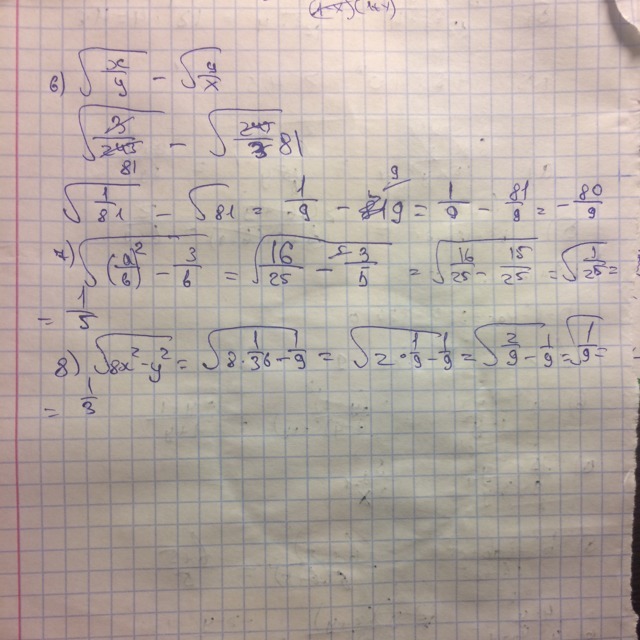 6) √(x/y) − √(y/x)
√(3/243) − √(243/3) 81
81
√(1/81) − √81 = 1/9 − 9 = 1/9 − 81/9 = −80/9
7) √((a/b)² − 3/b) = √(16/25 − 3/5) = √(16/25 − 15/25) = √(1/25) =
= 1/5
8) √(8x² − y²) = √(8 · 1/36 − 1/9) = √(2 · 1/9 − 1/9) = √(2/9 − 1/9) = √(1/9) =
= 1/3